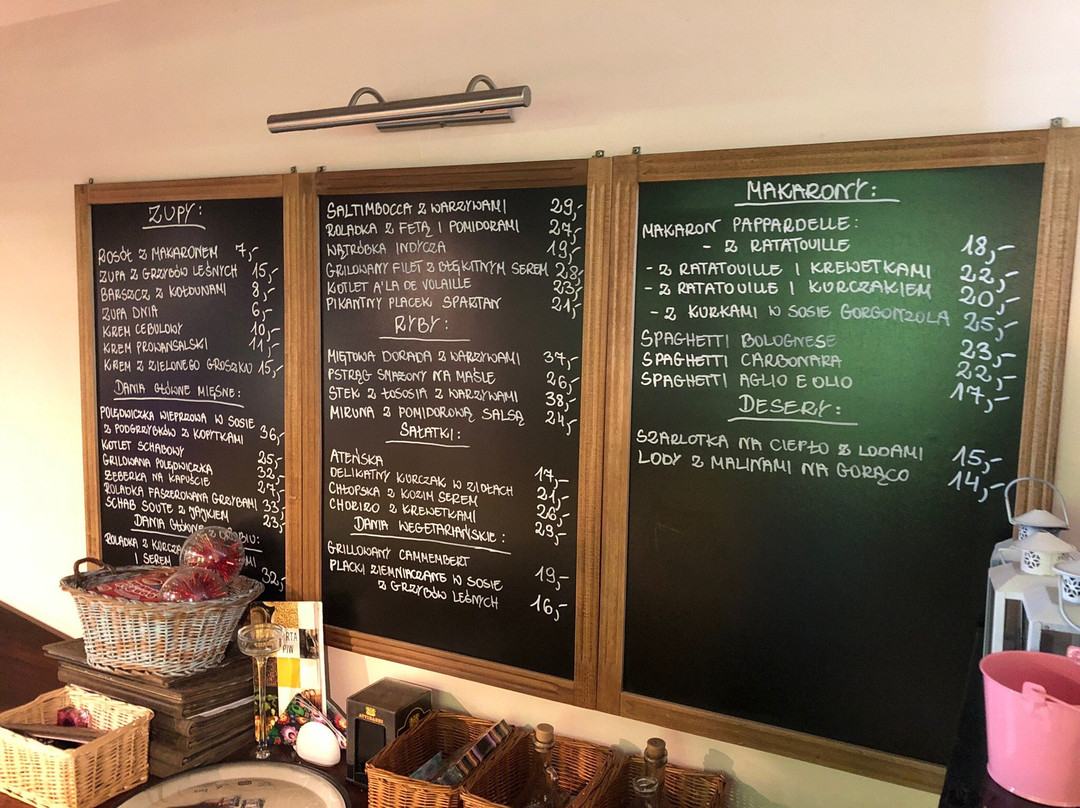 ZUPY:
ROSÓŁ Z MAKARONEM 7,-
ZUPA Z GRZYBÓW LEŚNYCH 15,-
BARSZCZ Z KOŁDUNAMI 8,-
ZUPA DNIA 6,-
KREM CEBULOWY 10,-
KREM PROWANSALSKI 11,-
KREM Z ZIELONEGO GROSZKU 15,-
DANIA GŁÓWNE MIĘSNE:
POLĘDWICZKA WIEPRZOWA W SOSIE
Z PODGRZYBKÓW Z KOPYTKAMI 36,-
KOTLET SCHABOWY 25,-
GRILOWANA POLĘDWICZKA 32,-
ŻEBERKA NA KAPUŚCIE 27,-
ROLADKA FASZEROWANA GRZYBAMI 33,-
SCHAB SOUTE Z JAJKIEM 23,-
DANIA GŁÓWNE Z DROBIU:
ROLADKA Z KURCZA
I SEREM 32,-
SALTIMBOCCA Z WARZYWAMI 29,-
ROLADKA Z FETĄ I POMIDORAMI 27,-
WĄTRÓBKA INDYCZA 19,-
GRILOWANY FILET Z BŁĘKITNYM SEREM 28,-
KOTLET A'LA DE VOLAILLE 23,-
PIKANTNY PLACEK SPARTAN 21,-
RYBY:
MIĘTOWA DORADA Z WARZYWAMI 37,-
PSTRĄG SMAŻONY NA MAŚLE 26,-
STEK Z ŁOSOSIA Z WARZYWAMI 38,-
MIRUNA Z POMIDOROWĄ SALSĄ 24,-
SAŁATKI:
ATEŃSKA 17,-
DELIKATNY KURCZAK W ZIOŁACH 21,-
CHŁOPSKA Z KOZIM SEREM 26,-
CHORIZO Z KREWETKAMI 29,-
DANIA WEGETARIAŃSKIE:
GRILLOWANY CAMMEMBERT 19,-
PLACKI ZIEMNIACZANE W SOSIE
Z GRZYBÓW LEŚNYCH 16,-
MAKARONY:
MAKARON PAPPARDELLE:
- Z RATATOUILLE 18,-
- Z RATATOUILLE I KREWETKAMI 22,-
- Z RATATOUILLE I KURCZAKIEM 20,-
- Z KURKAMI W SOSIE GORGONZOLA 25,-
SPAGHETTI BOLOGNESE 23,-
SPAGHETTI CARBONARA 22,-
SPAGHETTI AGLIO E OLIO 17,-
DESERY:
SZARLOTKA NA CIEPŁO Z LODAMI 15,-
LODY Z MALINAMI NA GORĄCO 14,-
PIW